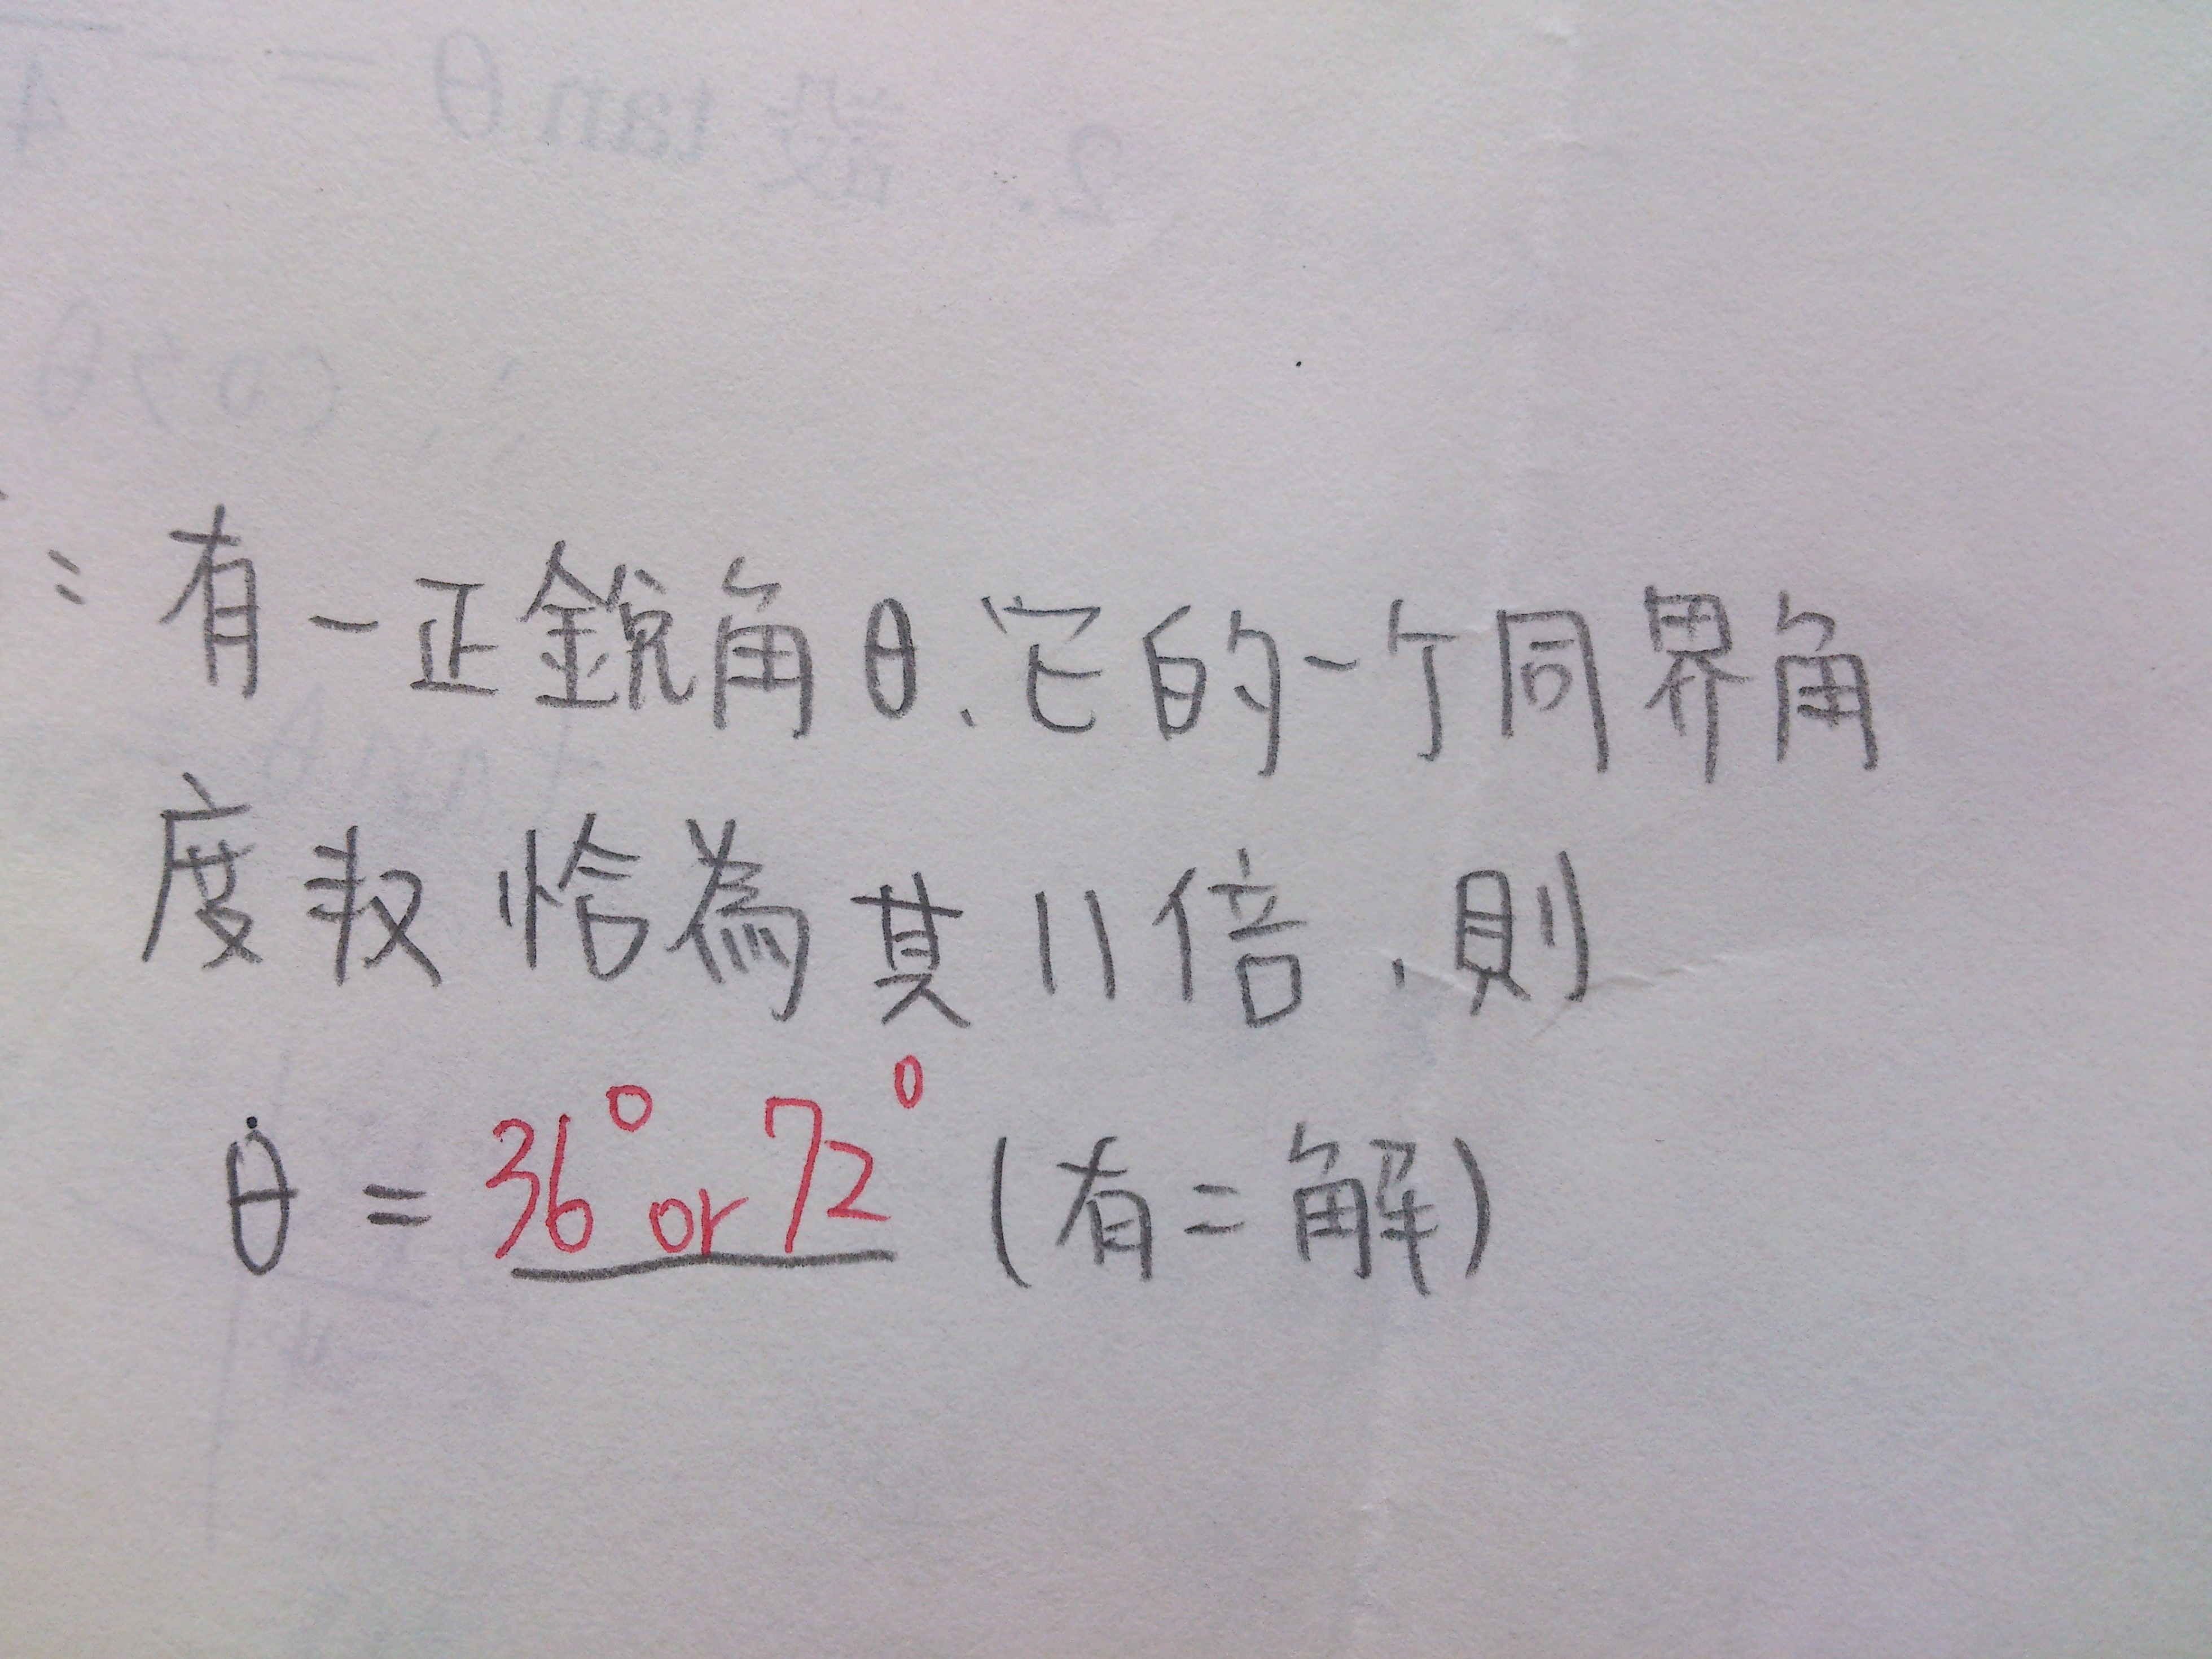 2. 設 tan θ = - 4
∴ cos θ
: 有一正銳角θ、它的一个同界角
度数恰為其11倍,則
θ = 36° or 72° (有二解)